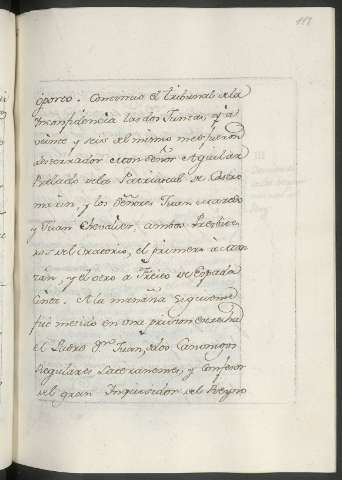 117
oporto. Continuó el tribunal de la
Inconfidencia las dos Juntas, y a
veinte y seis del mismo mes fueron
desterrados el con Señor Aguilar
Prelado de la Patriarcal de Castro
marin, y los Señores Juan Macedo
y Juan Chevalier, ambos Presbite
ros del Oratorio, el primero a
y el otro a Freixo de Espada
Cinta. A la mañana siguiente
fue metido en una prision estrecha
el Padre Juan, de los Canonigos
Reglares Lateranenses, y confesor
del gran Inquisidor del Reyno